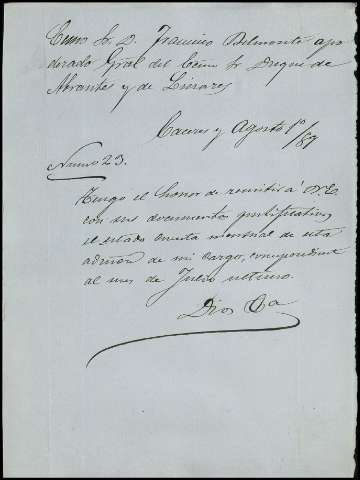 Exmo Sr. D. Francisco Belmonte apo
derado Gral del Exmo Sr Duque de
Abrantes y de Linares
Caceres y Agosto 1º/89
Numo 23.
Tengo el honor de remitir á V.E.
con sus documentos justificativos
el estado cuenta mensual de esta
admon de mi cargo, correspondiente
al mes de Julio ultimo.
Dios &a